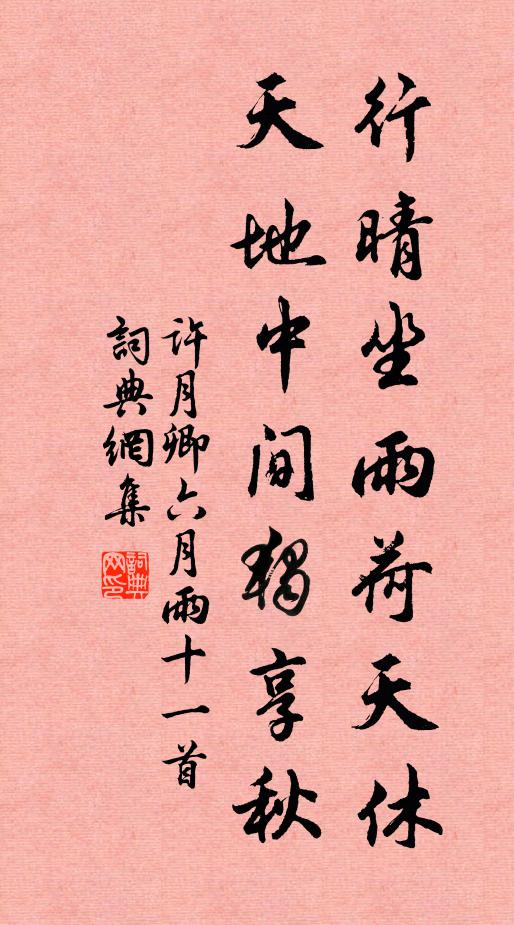 行晴坐雨荷天休
天地中間獨享秋
許月卿六月雨十一首
詞典網集
詞典网印